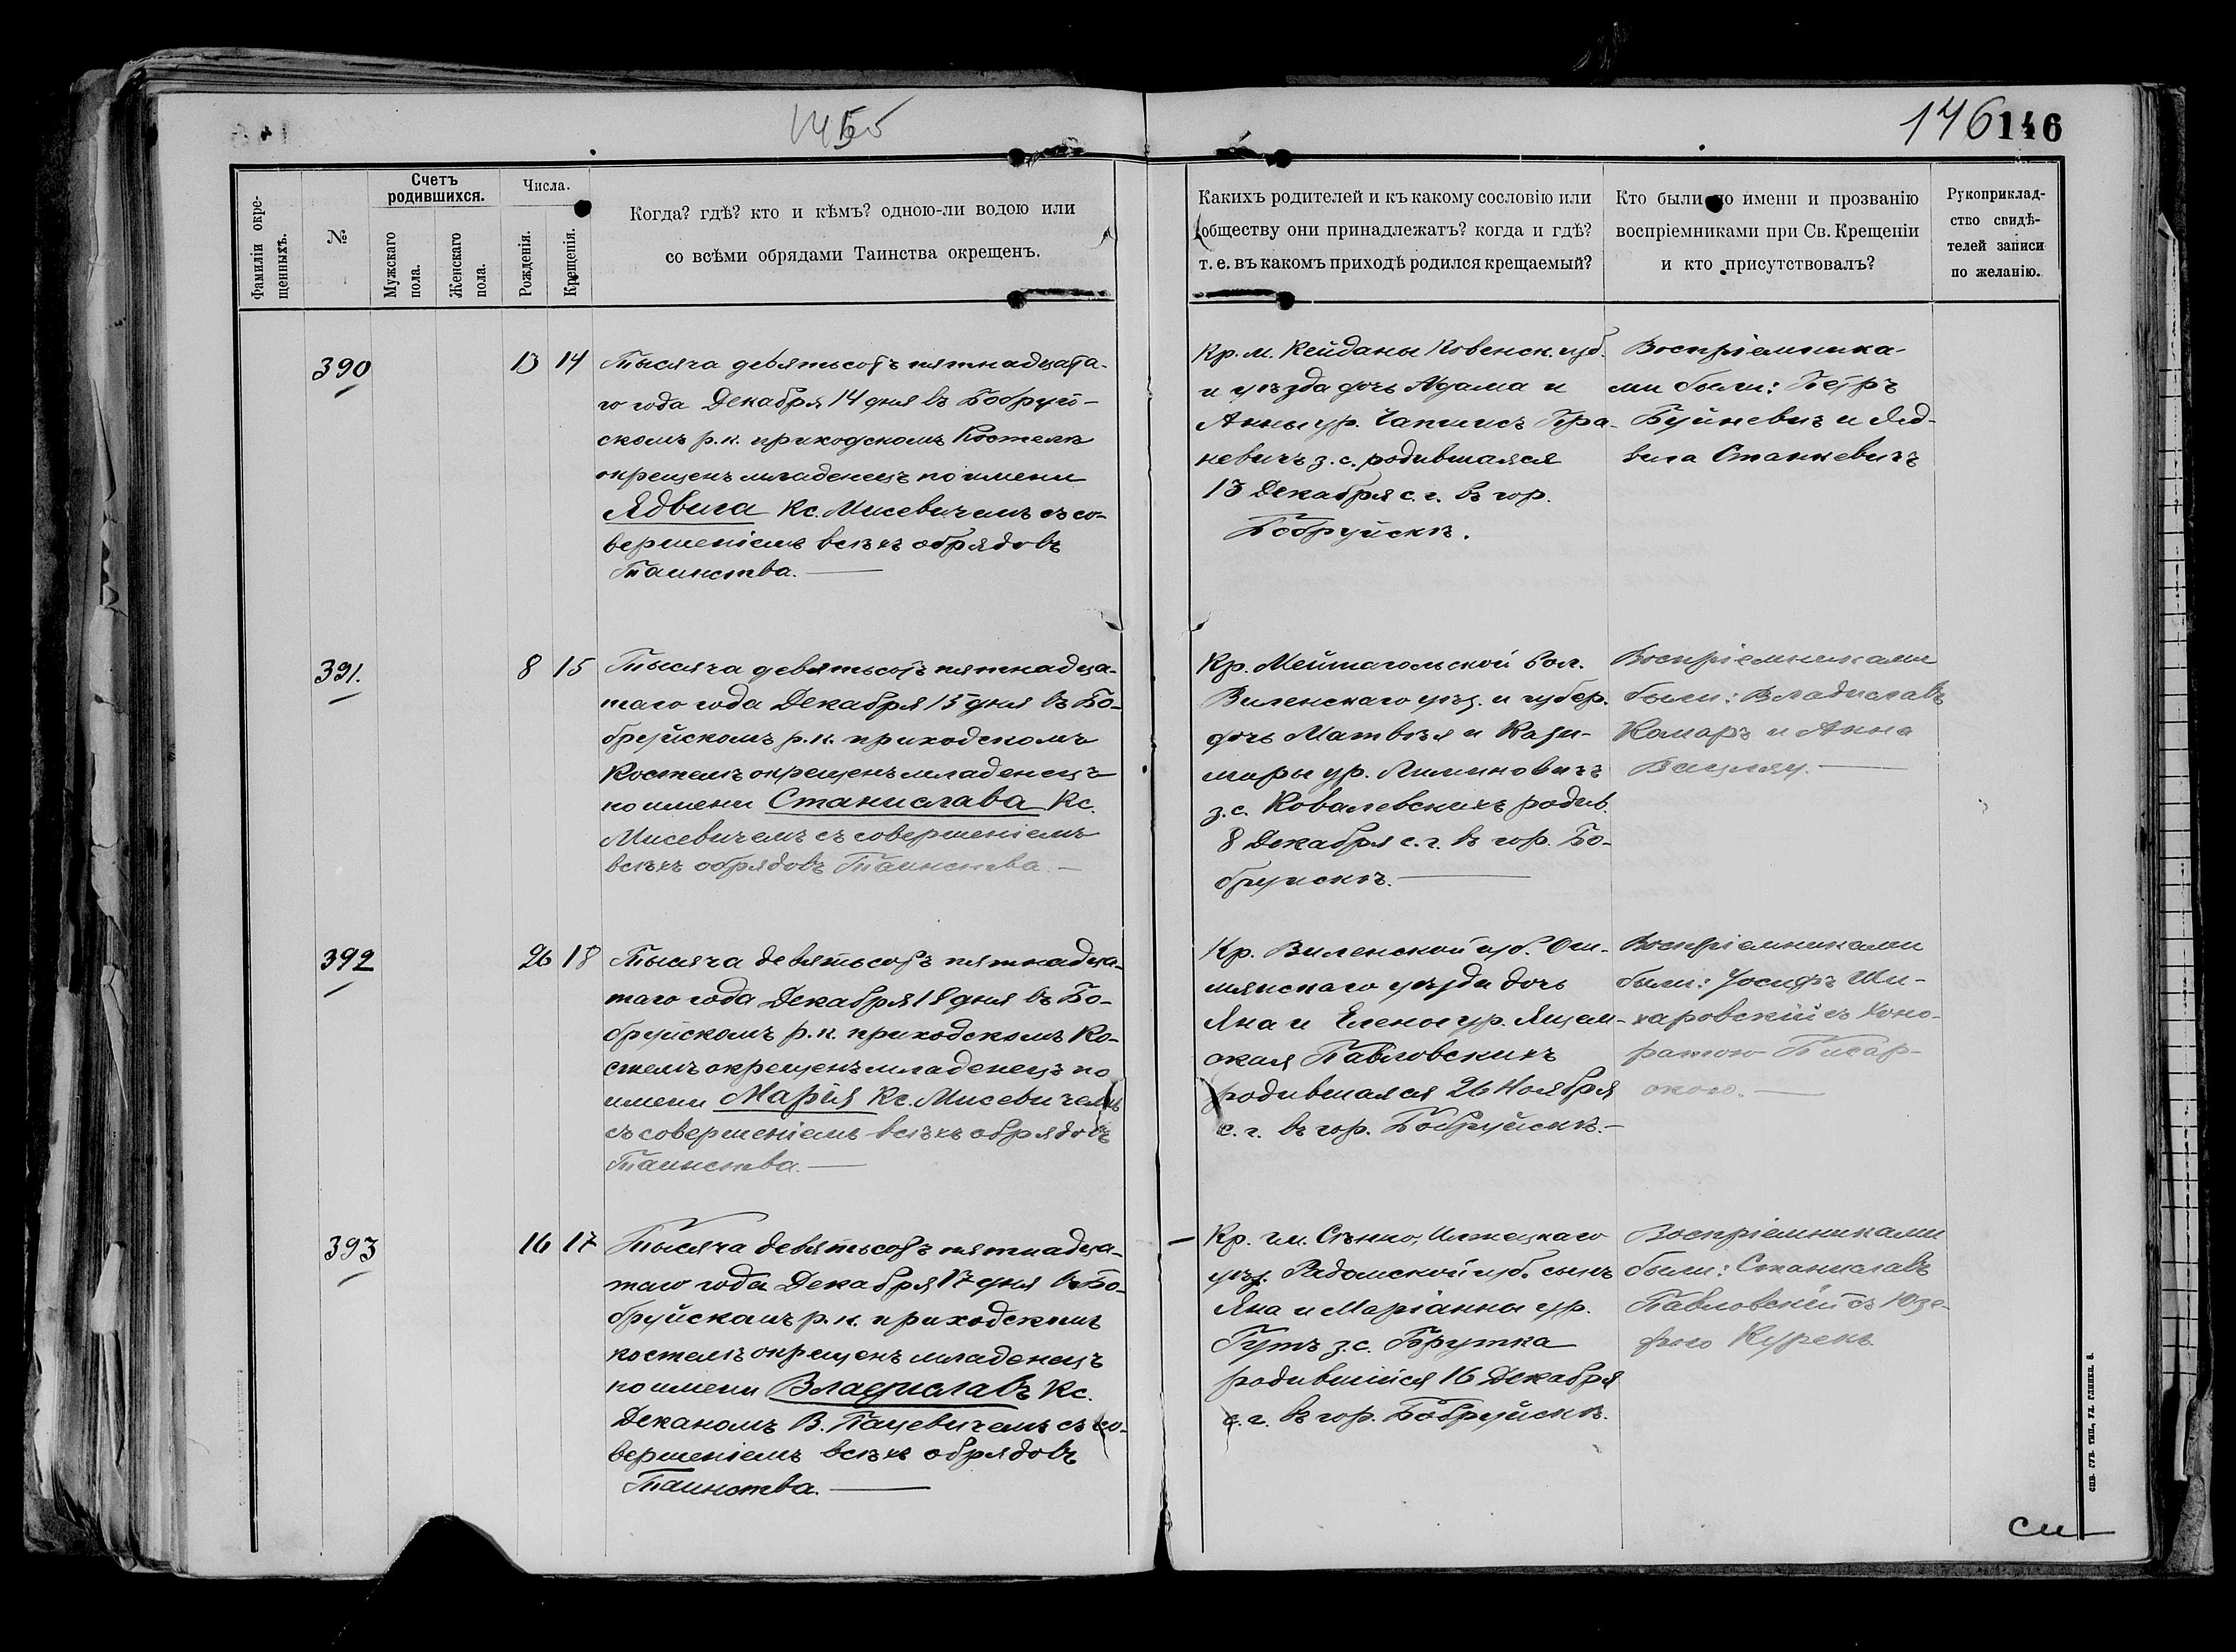 1455
146
146
Фамиліи окре-
щенныхъ.
№
Счетъ
родившихся.
Мужскаго
пола.
Женскаго
пола.
Числа.
Рожденія.
Крещенія.
Когда? гдѣ? кто и кѣмъ? одною-ли водою или
со всѣми обрядами Таинства окрещенъ.
Какихъ родителей и къ какому сословію или
обществу они принадлежатъ? когда и гдѣ?
т. е. въ какомъ приходѣ родился крещаемый?
Кто были по имени и прозванію
воспріемниками при Св. Крещеніи
и кто присутствовалъ?
Рукоприклад-
ство свидѣ-
телей записи
по желанію.
390
13 14
Тысяча девятьсотъ пятнадцата-
го года Декабря 14 дня въ Бобруй-
скомъ р.к. приходскомъ Костелѣ
окрещенъ младенецъ по имени
Ядвига Кс. Мисевичемъ съ со-
вершеніемъ всѣхъ обрядовъ
Таинства.
Кр. м. Кейданы Ковенск. губ.
и уѣзда дочь Адама и
Анны ур. Чаплисъ Гра-
невичъ з.с. родившаяся
13 Декабря с. г. въ гор.
Бобруйскѣ.
Воспріемника-
ми были: Петръ
Буйневичъ и Яд-
вига Станкевичъ
391.
8 15
Тысяча девятьсотъ пятнадца-
таго года Декабря 15 дня въ Бо-
бруйскомъ р.к. приходскомъ
Костелѣ окрещенъ младенецъ
по имени Станислава Кс.
Мисевичемъ съ совершеніемъ
всѣхъ обрядовъ Таинства.
Кр. Мейшагольской вол.
Виленскаго уѣз. и губер.
дочь Матвѣя и Кази-
миры ур. Лимановичъ
з.с. Ковалевскихъ родив.
8 Декабря с. г. въ гор. Бо-
бруйскѣ.
Воспріемниками
были: Владиславъ
Комаръ и Анна
392
26 18
Тысяча девятьсотъ пятнадца-
таго года Декабря 18 дня въ Бо-
бруйскомъ р.к. приходскомъ Ко-
стелѣ окрещенъ младенецъ по
имени Марія Кс. Мисевичемъ
съ совершеніемъ всѣхъ обрядовъ
Таинства.
Кр. Виленской губ. Ош-
мянскаго уѣзда дочь
Яна и Елены ур.
Павловскихъ
родившаяся 26 Ноября
с. г. въ гор. Бобруйскѣ.
Воспріемниками
были: Іосифъ Ши-
каровскій съ Коно-
ратою Писар-
скою.
393
16 17
Тысяча девятьсотъ пятнадца-
таго года Декабря 17 дня въ Бо-
бруйскомъ р.к. приходскомъ
костелѣ окрещенъ младенецъ
по имени Владиславъ Кс.
Деканомъ В. Пацевичемъ съ со-
вершеніемъ всѣхъ обрядовъ
Таинства.
Кр. гм. Сѣнно, Илжецкаго
уѣз. Радомской губ. сынъ
Яна и Маріанны ур.
Гутъ з.с. Брутка
родившійся 16 Декабря
с. г. въ гор. Бобруйскѣ.
Воспріемниками
были: Станиславъ
Павловскій съ Юзе-
фою Курекъ.
см